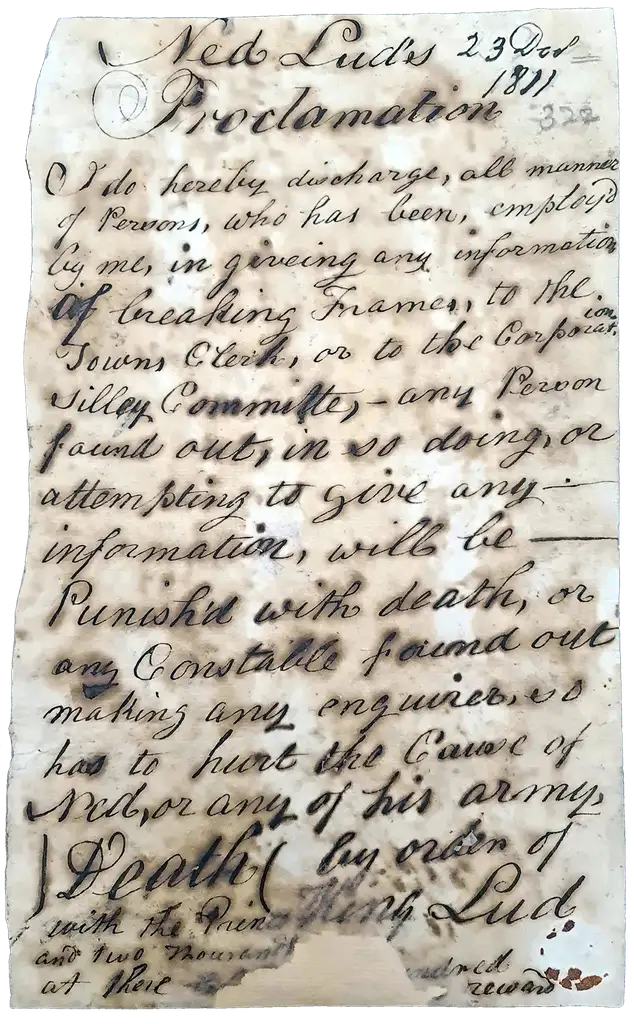 Ned Lud's 23 Decr
1811
Proclamation
322
I do hereby discharge, all manner
of Persons, who has been, employ'd
by me, in giveing any information
of breaking Frames, to the
Towns Clerk, or to the Corporation
Silley Committe, - any Person
found out, in so doing, or
attempting to give any —
information, will be —
Punish'd with death, or
any Constable found out
making any enquiries, so
has to hurt the Cause of
Ned, or any of his army,
) Death ( by order of
King Lud
with the Prin
and two thousand
at there
ndred
reward